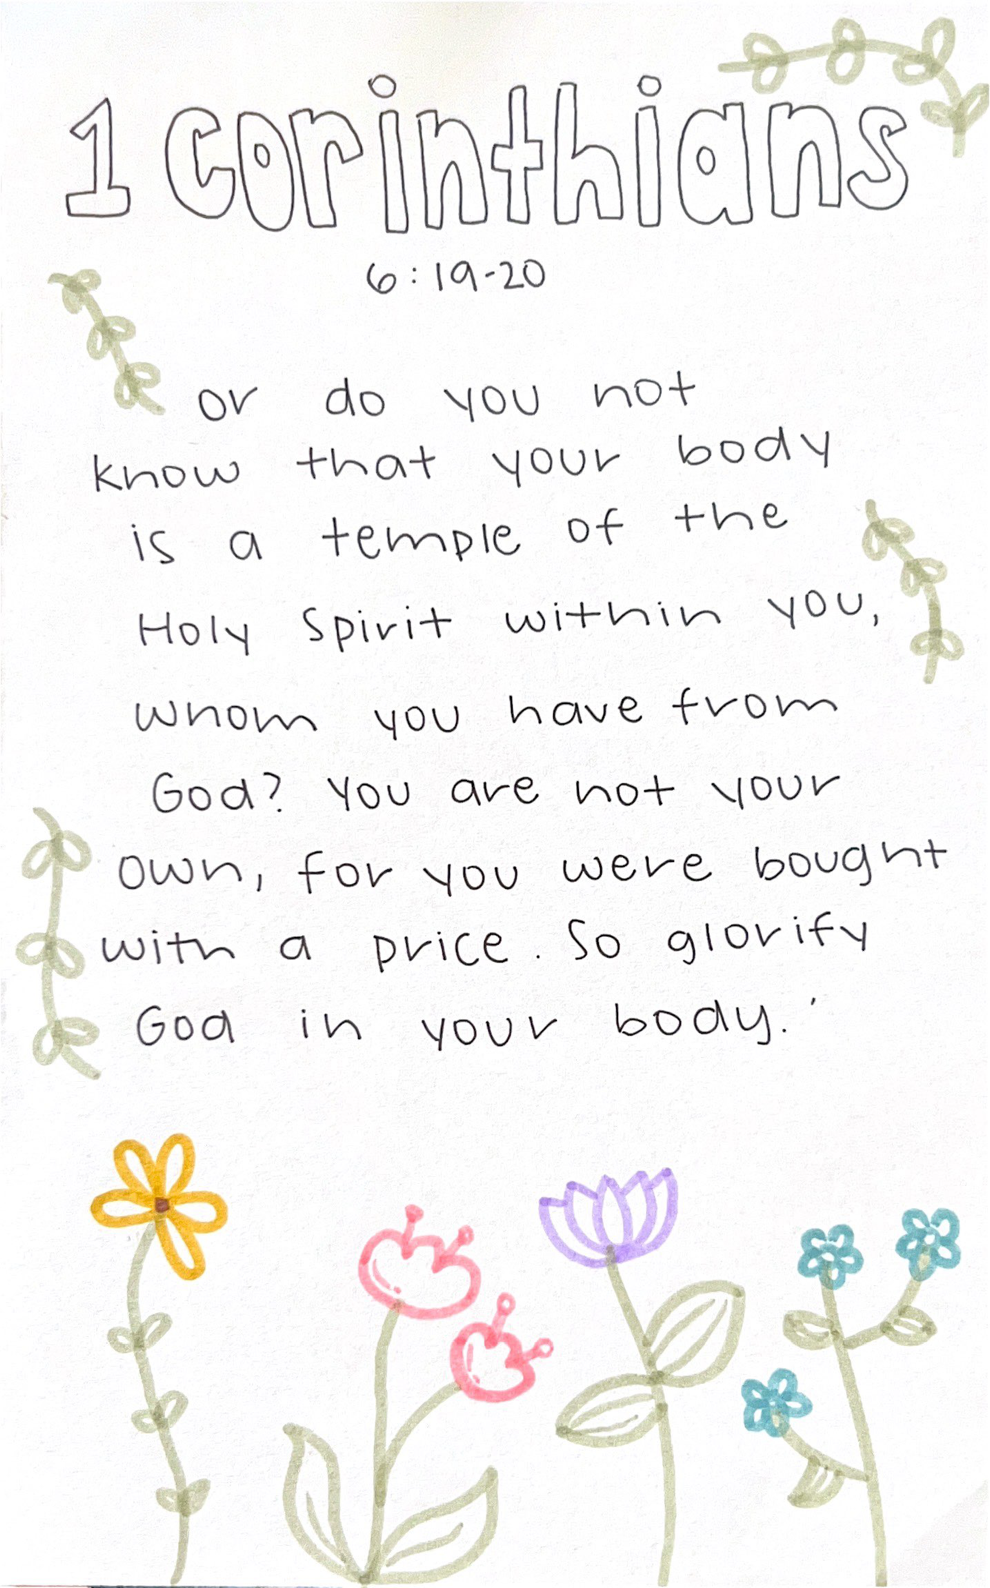 1 corinthians
6:19-20
or do you not
know that your body
is a temple of the
Holy Spirit within you,
whom you have from
God? You are not your
own, for you were bought
with a price. So glorify
God in your body.'